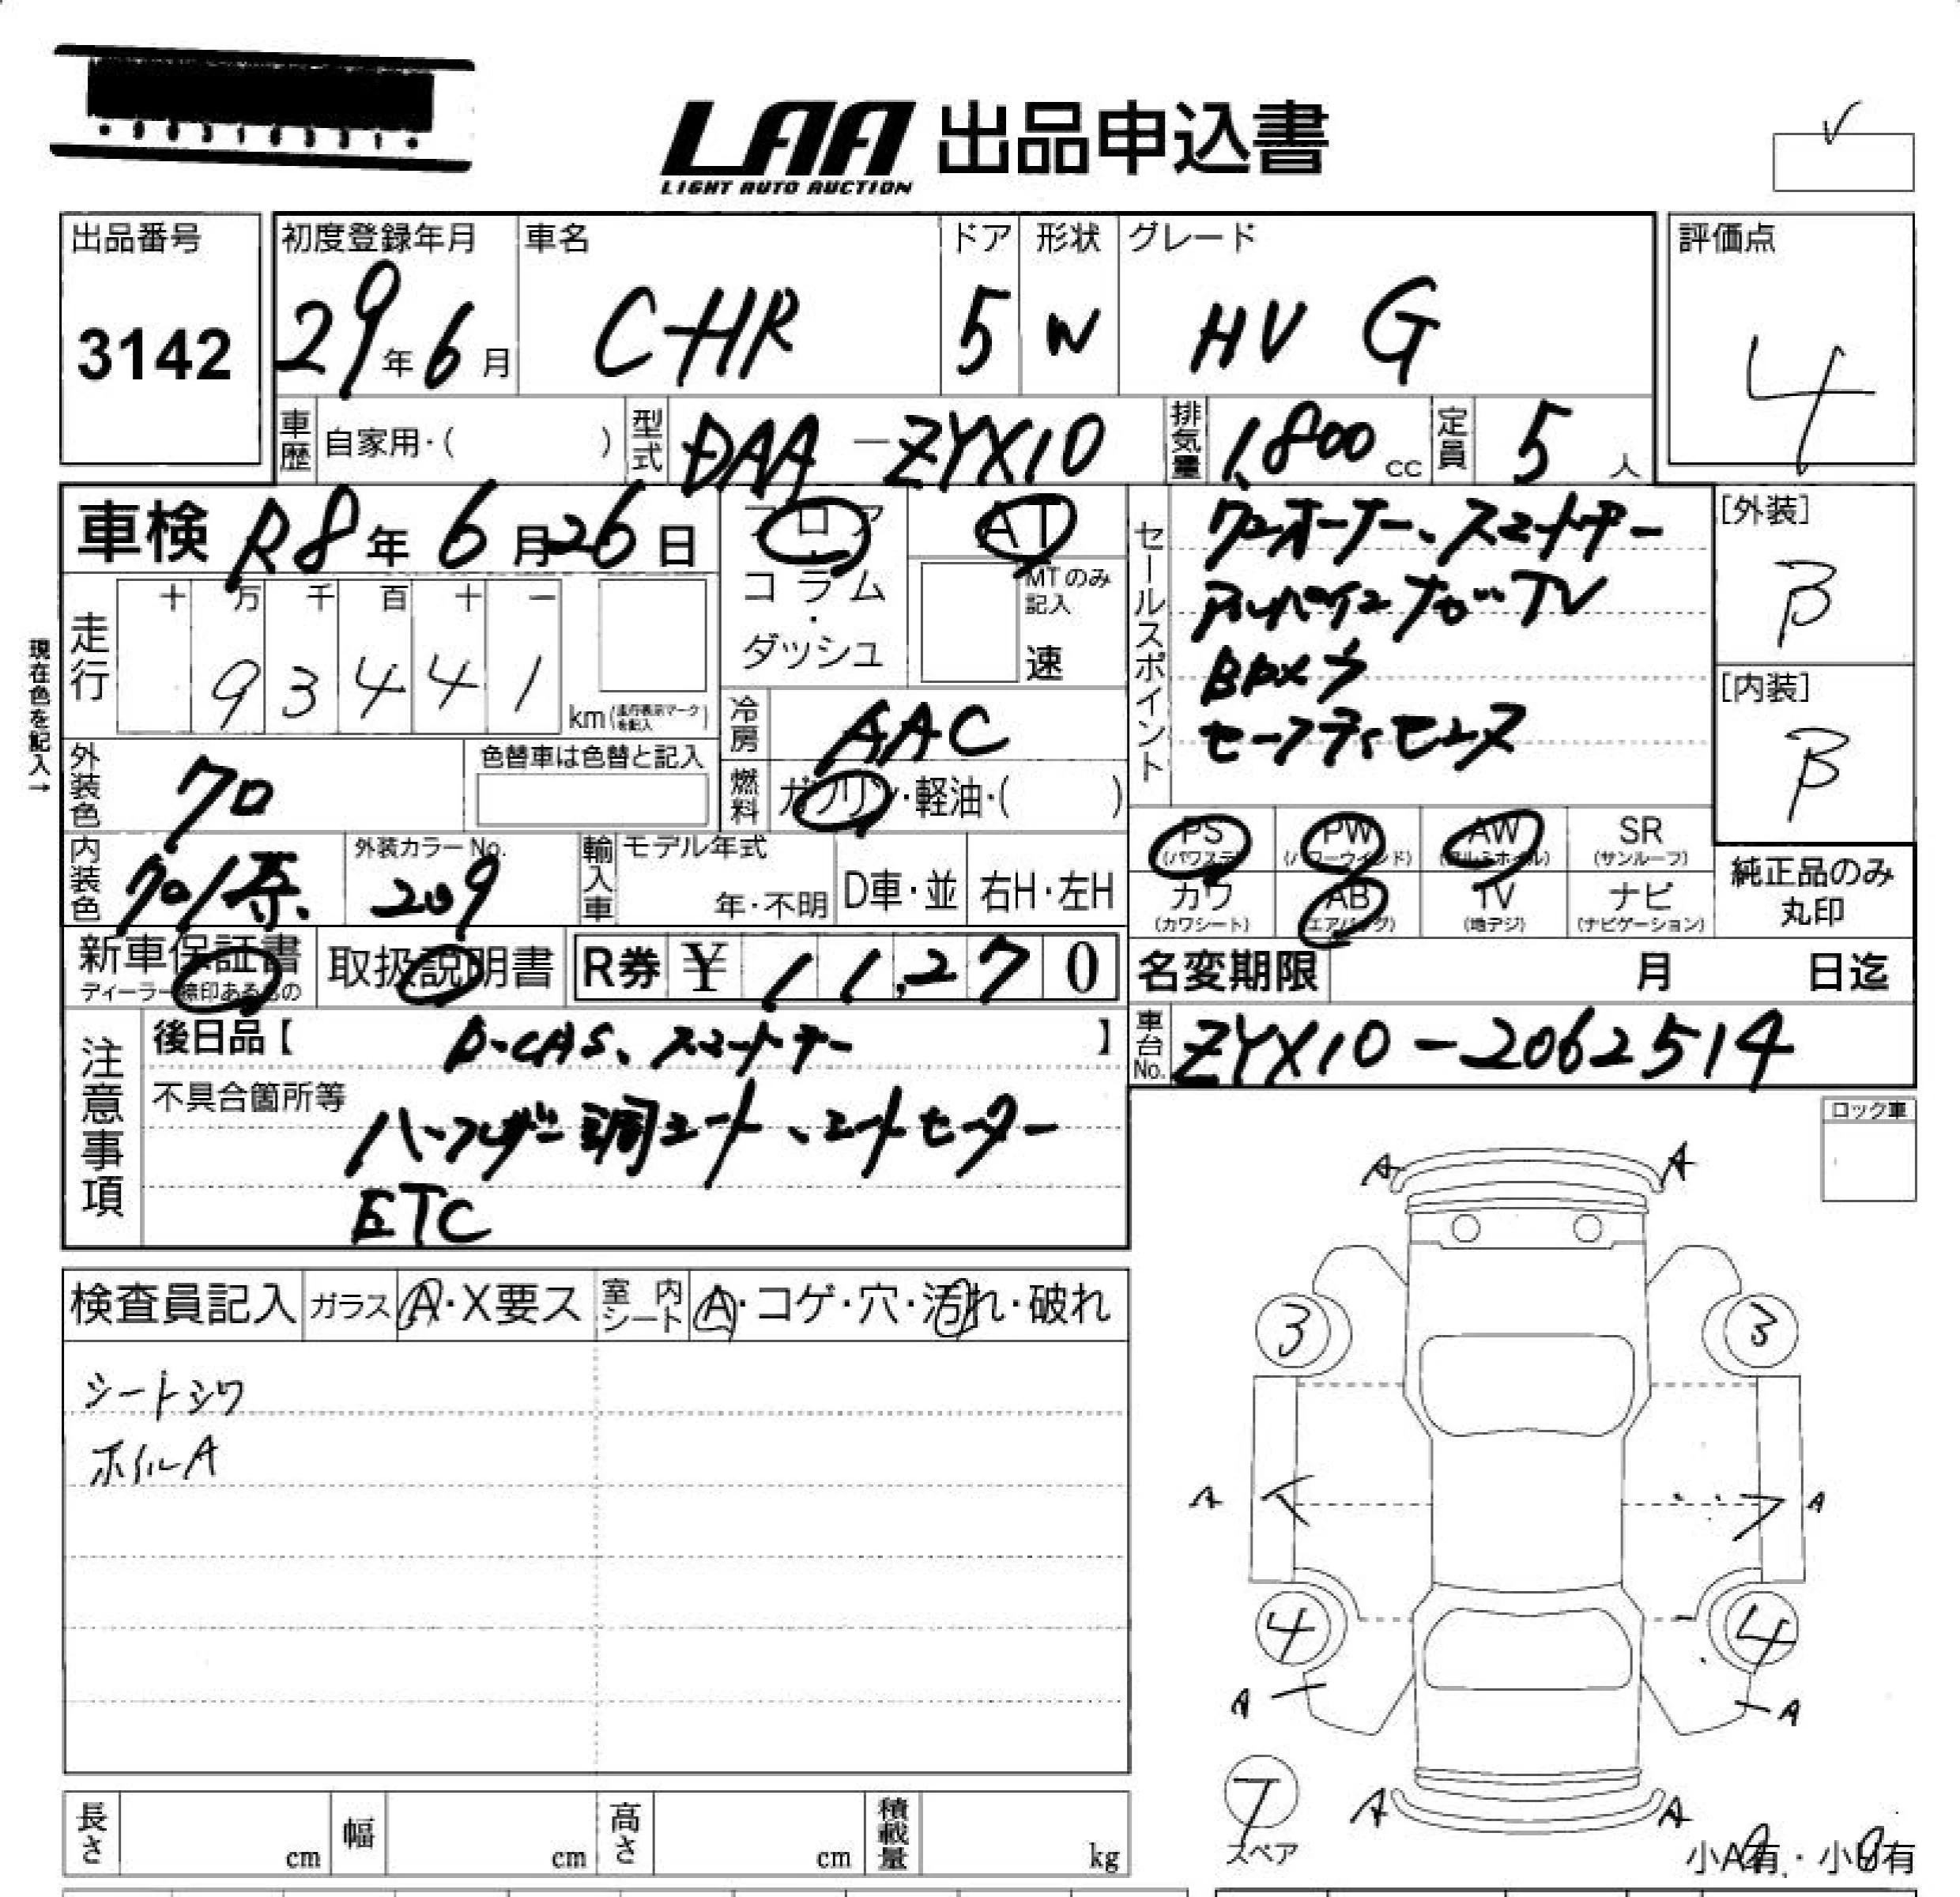 LAA 出品申込書
LIGHT AUTO AUCTION
出品番号
3142
初度登録年月
29年6月
車名
C-HR
ドア
5
形状
W
グレード
HV G
評価点
4
車歴
自家用・( )
型式
DAA-ZYX10
排気量
1,800cc
定員
5人
車検 R8年6月26日
フロア・コラム・ダッシュ
AT
MTのみ記入
速
セールスポイント
ワンオーナー、スマートキー
アルパインナビ・TV
Bカメラ
セーフティセンス
[外装]
B
[内装]
B
現在色を記入→
走行
十 万 千 百 十 一
9 3 4 4 1
km(走行表示マークを記入)
冷房
AAC
外装色
クロ
色替車は色替と記入
燃料
ガソリン・軽油・( )
PS
(パワステ)
PW
(パワーウインド)
AW
(アルミホイル)
SR
(サンルーフ)
カワ
(カワシート)
AB
(エアバッグ)
TV
(地デジ)
ナビ
(ナビゲーション)
純正品のみ丸印
内装色
クロ/茶
外装カラーNo.
209
輸入車
モデル年式
年・不明
D車・並
右H・左H
新車保証書
ディーラー捺印あるもの
取扱説明書
R券 ¥ 11,270
名変期限 月 日迄
注意事項
後日品【 B-CAS、スマートキー 】
車台No.
ZYX10-2062514
不具合箇所等
ハーフレザー調シート、シートヒーター
ETC
ロック車
検査員記入
ガラス
A・X要ス
室内シート
A・コゲ・穴・汚れ・破れ
シートシワ
ホイルA
A A
3 3
A A
4 4
A A
7
スペア
A A
小A有・小U有
長さ cm
幅 cm
高さ cm
積載量 kg